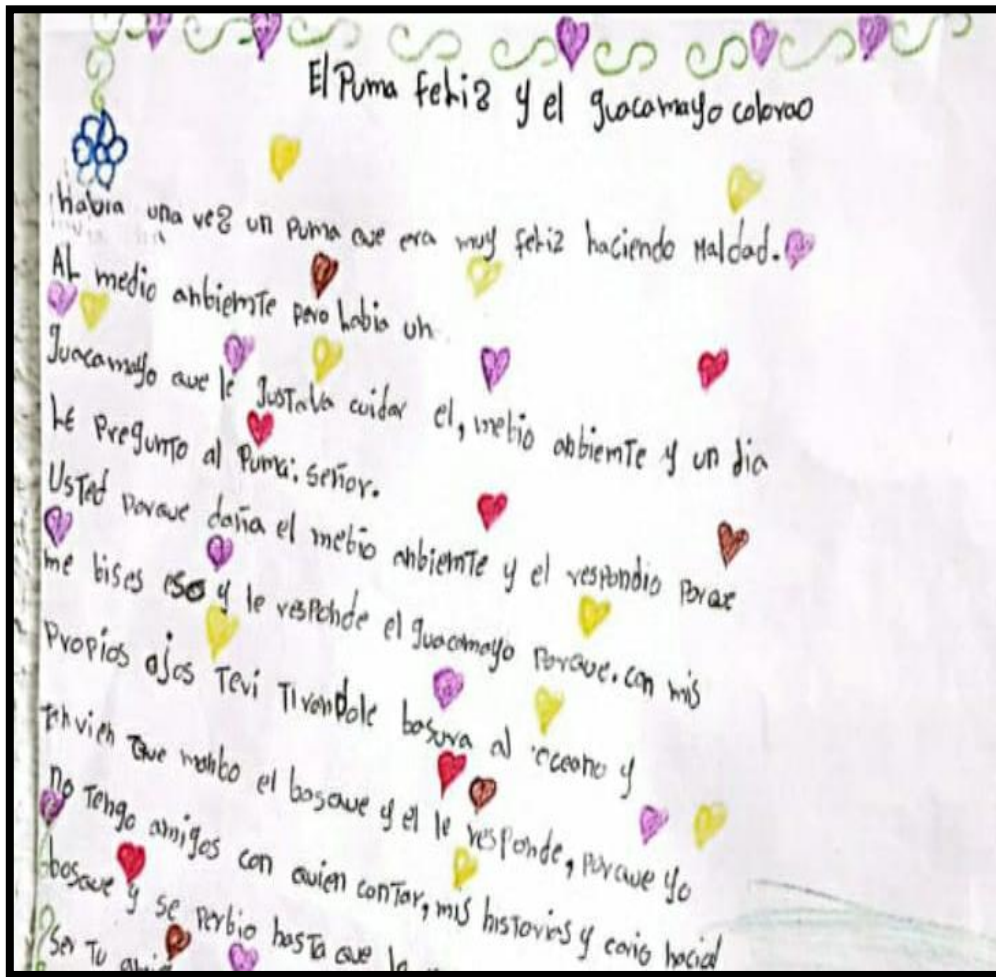 El Puma feliz y el guacamayo colorao
había una vez un Puma que era muy feliz haciendo Maldad.
AL medio anbiemTe pero habia un
guacamayo que le gusTava cuidar el, mebio anbiemTe y un dia
LE PregunTo al Puma: señor.
UsTed porque daña el mebio anbiemTe y el respondio Porqe
me bises eso y le responde el guacamayo Porque. con mis
Propios ojos Tevi TirandoLe basura al oceano y
Tanvien Que mando el bosque y el le responde, porque yo
no Tengo amigos con quien conTar, mis hisTorias y corio hacial
bosque y se perbio hasTa que
Ser Tu